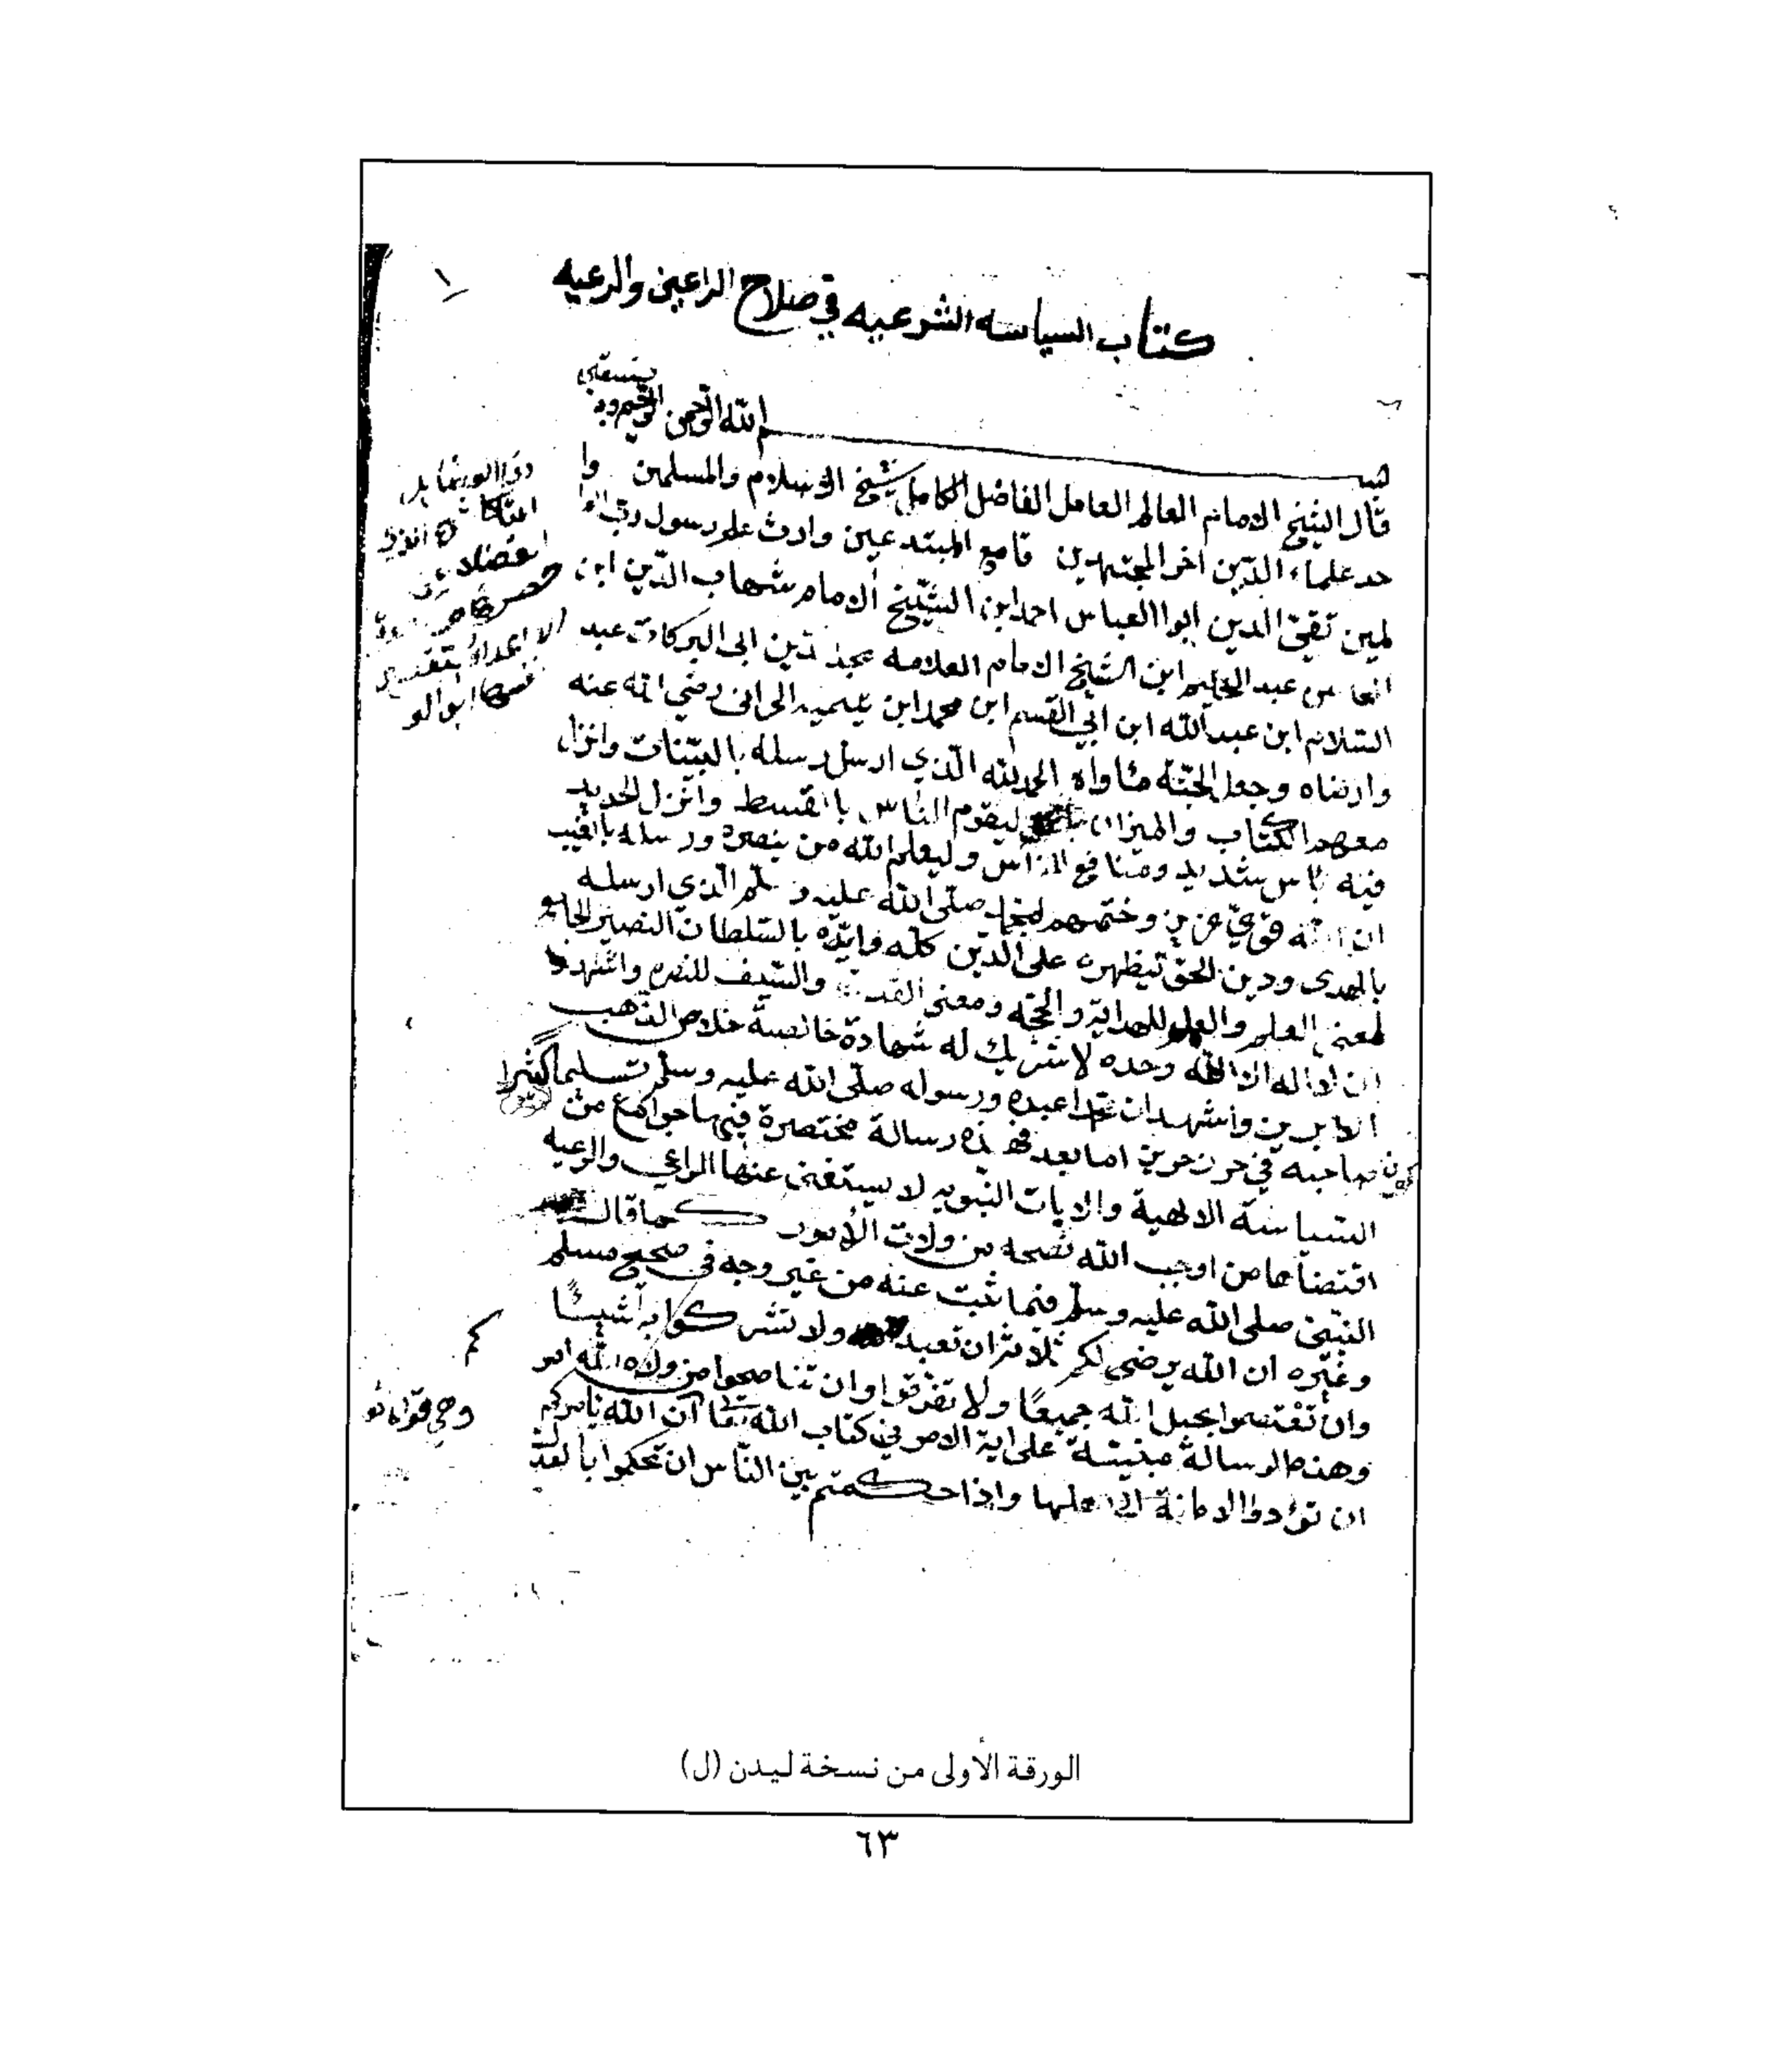 كتاب السياسه الشرعيه في صلاح الراعي والرعيه
بسم الله الرحمن الرحيم وبه نستعين
قال الشيخ الامام العالم العامل الفاضل الكامل شيخ الاسلام والمسلمين وا
حد علماء الدين اخر المجتهدين قامع المبتدعين وارث علم رسول رب العا
لمين تقيّ الدين ابوا العباس احمد ابن الشيخ الامام شهاب الدين ابن
عبد الحليم ابن الشيخ الامام العلامه مجد الدين ابى البركات عبد
السلام ابن عبد الله ابن ابي القسم ابن محمد ابن تيميه الحرانى رضي الله عنه
وارضاه وجعل الجنّة مثاواه الحمد لله الّذي ارسل رسله بالبيّنات وانزل
معهم الكتاب والميزان ليقوم النّاس باالقسط وانزل الحديد
فيه بأس شديد ومنافع للنّاس وليعلم الله من ينصره ورسله باالغيب
ان الله قويّ عزيز وختمهم صلّى الله عليه وسلّم الّذي ارسله
بالهدى ودين الحق ليظهره على الدّين كلّه وايّده بالسّلطان النصير الجامع
لمعنى العلم والقلم للهداية والحجّه ومعنى القدرة والسّيف للنصره واشهد
ان لا اله الا الله وحده لا شريك له شهادة خالصة خلاص الذّهب
الابريز واشهد ان محمدا عبده ورسوله صلّى الله عليه وسلّم تسليما كثيرا
صاحبه في حرز حريز اما بعد فهذه رسالة مختصرة فيها جوامع من
السّياسة الالهية والايات النبويه لا يستغنى عنها الراعي والرعيه
اقتضاها من اوجب الله نصحه من ولات الأمور كما قال
النبّي صلى الله عليه وسلّم فيما ثبت عنه من غير وجه في صحيح مسلم
وغيره ان الله يرضى لكم ثلاث ان تعبدوه ولا تشركوا به شيئًا
وان تعتصموا بحبل الله جميعًا ولا تفرّقوا وان تناصحوا من ولاه الله امر
كم
وهذه الرسالة مبنيّة على اية الامر في كتاب الله ان الله يأمركم
ان تؤدوا الامانة الى اهلها واذا حكمتم بين النّاس ان تحكموا بالعد
الورقة الأولى من نسخة ليدن (ل)
٦٣